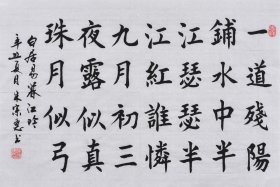 一道殘陽
鋪水中半
江瑟瑟半
江紅誰憐
九月初三
夜露似真
珠月似弓
白居易暮江吟
辛丑夏月朱